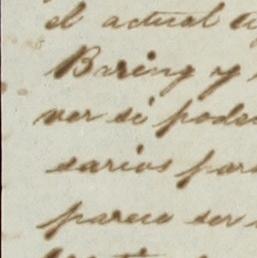 el actual
Baring y
ver si pode
sarios para
parece ser